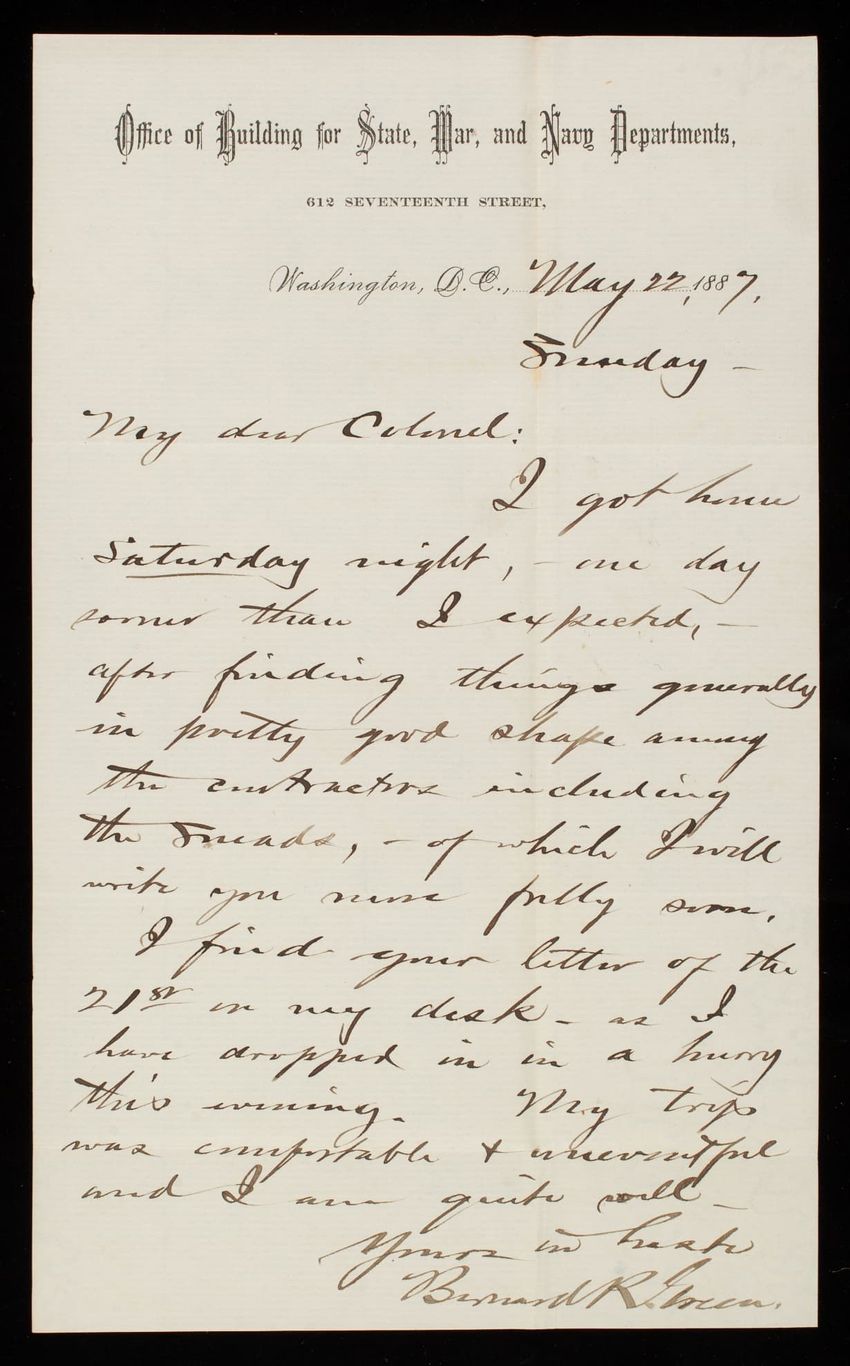 Office of Building for State, War, and Navy Departments,
612 SEVENTEENTH STREET,
Washington, D.C., May 22, 1887.
Sunday –
My dear Colonel:
I got home
Saturday night, – one day
sooner than I expected, –
after finding things generally
in pretty good shape among
the contractors including
the Sneads, – of which I will
write you more fully soon.
I find your letter of the
21st on my desk – as I
have dropped in in a hurry
this evening. My trip
was comfortable & uneventful
and I am quite well –
Yours in haste
Bernard R. Green.